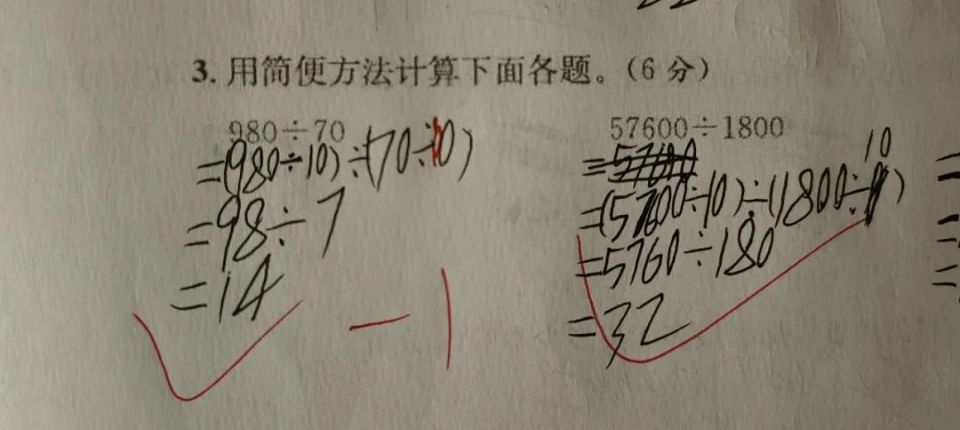 3. 用简便方法计算下面各题。(6 分)
980÷70
=(980÷10)÷(70÷10)
=98÷7
=14
-1
57600÷1800
=(57600÷10)÷(1800÷10)
=5760÷180
=32